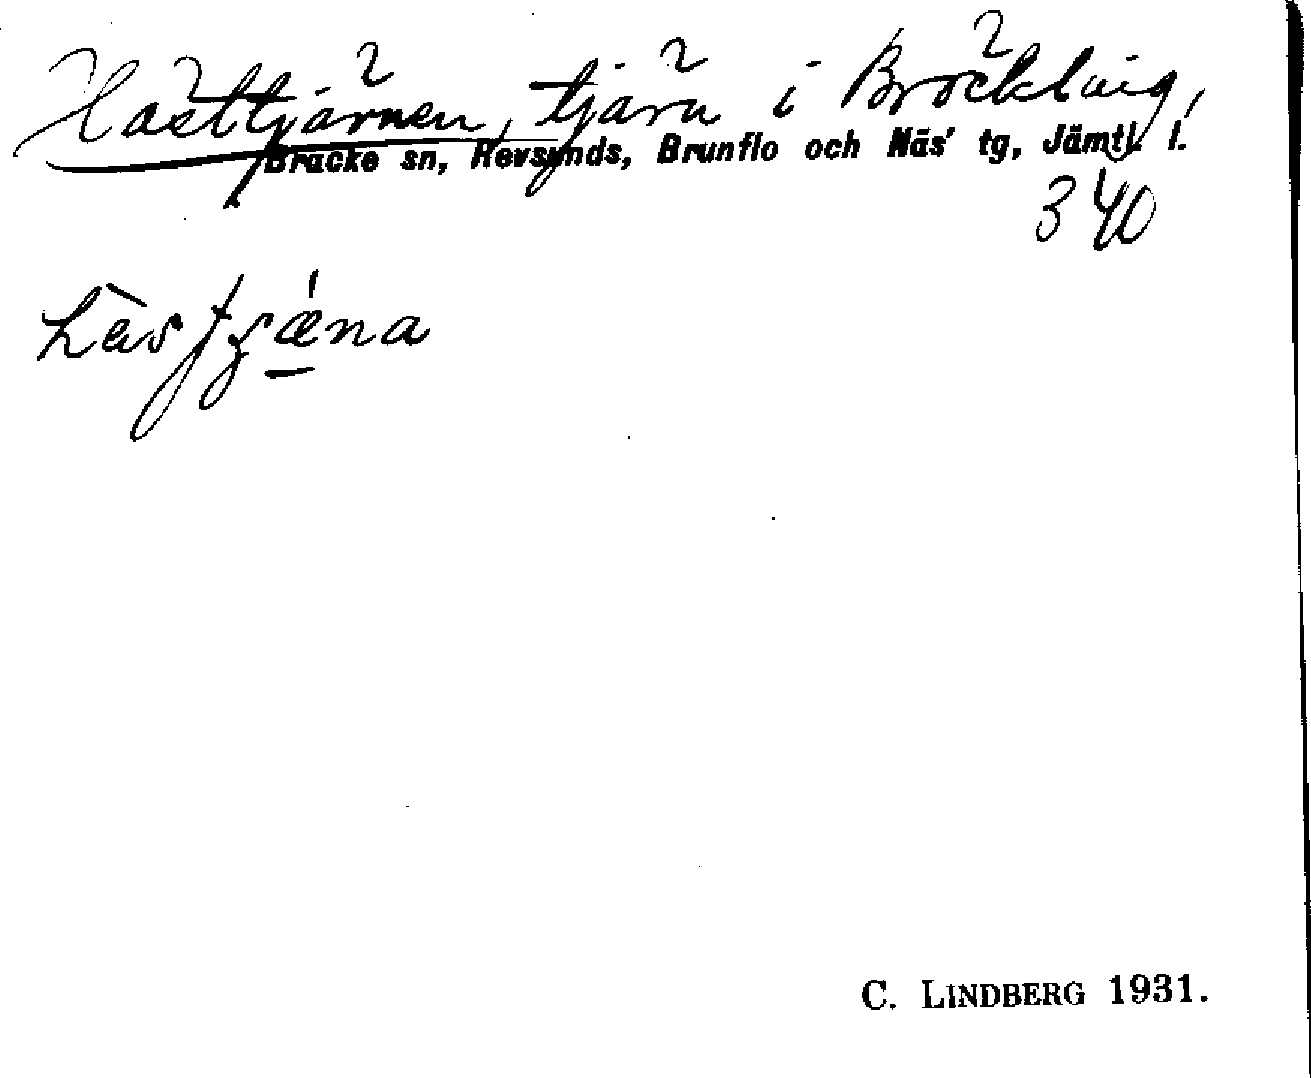 Hästtjärnen, tjärn i Bräckling,
Bräcke sn, Revsunds, Brunflo och Näs' tg, Jämtl. l.
340
C. LINDBERG 1931.